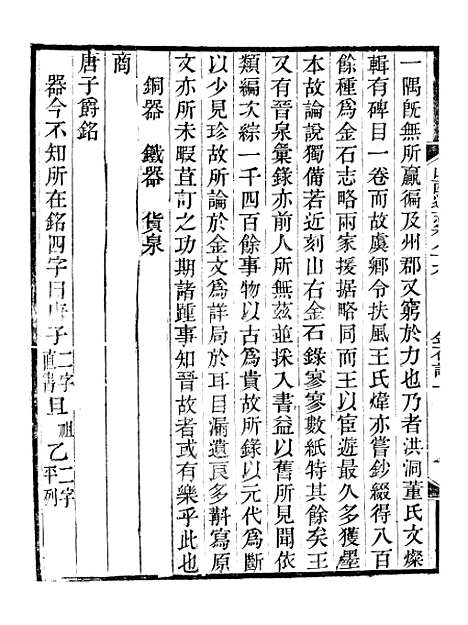 一隅旣無所贏徧及州郡又窮於力也乃者洪洞董氏文燦
輯有碑目一卷而故虞鄉令扶風王氏煒亦嘗鈔綴得八百
餘種爲金石志略兩家援據略同而王以宦遊最久多獲墨
本故論說獨備若近刻山右金石錄寥寥數紙特其餘矣王
又有晉泉彙錄亦前人所無茲並採入書益以舊所見聞依
類編次綜一千四百餘事物以古爲貴故所錄以元代爲斷
以少見珍故所論於金文爲詳局於耳目漏遺良多斠寫原
文亦所未暇苴訂之功期諸踵事知晉故者或有樂乎此也
銅器　鐵器　貨泉
商
唐子爵銘
器今不知所在銘四字曰唐子二字直書且祖乙二字平列